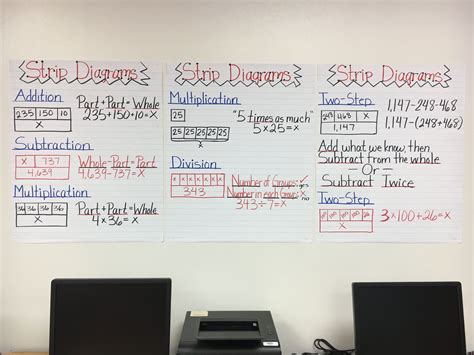 Strip Diagrams
Addition
235 150 10
X
Part + Part = Whole
235+150+10=X
Subtraction
X 737
4,639
Whole-Part=Part
4,639-737=X
Multiplication
36 36 36 36
X
Part + Part = Whole
4x36=X
Strip Diagrams
Multiplication
25
25 25 25 25 25
X
"5 times as much"
5x25=X
Division
343
Number of Groups:
Number in each Group: X
343÷7=X
Strip Diagrams
Two-Step
248 468 X
1,147
1,147-248-468
1,147-(248+468)
Add what we know, then
Subtract from the whole
- Or -
Subtract Twice
Two-Step
X
3x100+26=X